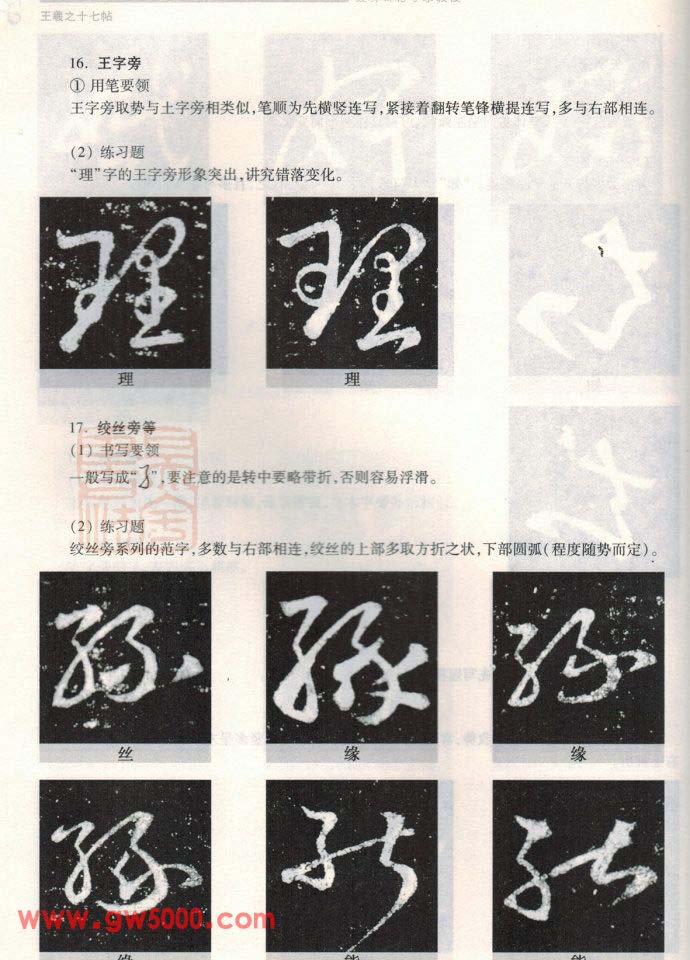 王羲之十七帖
16. 王字旁
① 用笔要领
王字旁取势与土字旁相类似,笔顺为先横竖连写,紧接着翻转笔锋横提连写,多与右部相连。
(2) 练习题
“理”字的王字旁形象突出,讲究错落变化。
理 理
17. 绞丝旁等
(1) 书写要领
一般写成“ ”,要注意的是转中要略带折,否则容易浮滑。
(2) 练习题
绞丝旁系列的范字,多数与右部相连,绞丝的上部多取方折之状,下部圆弧(程度随势而定)。
丝 缘 缘
www.gw5000.com
缘 能 能